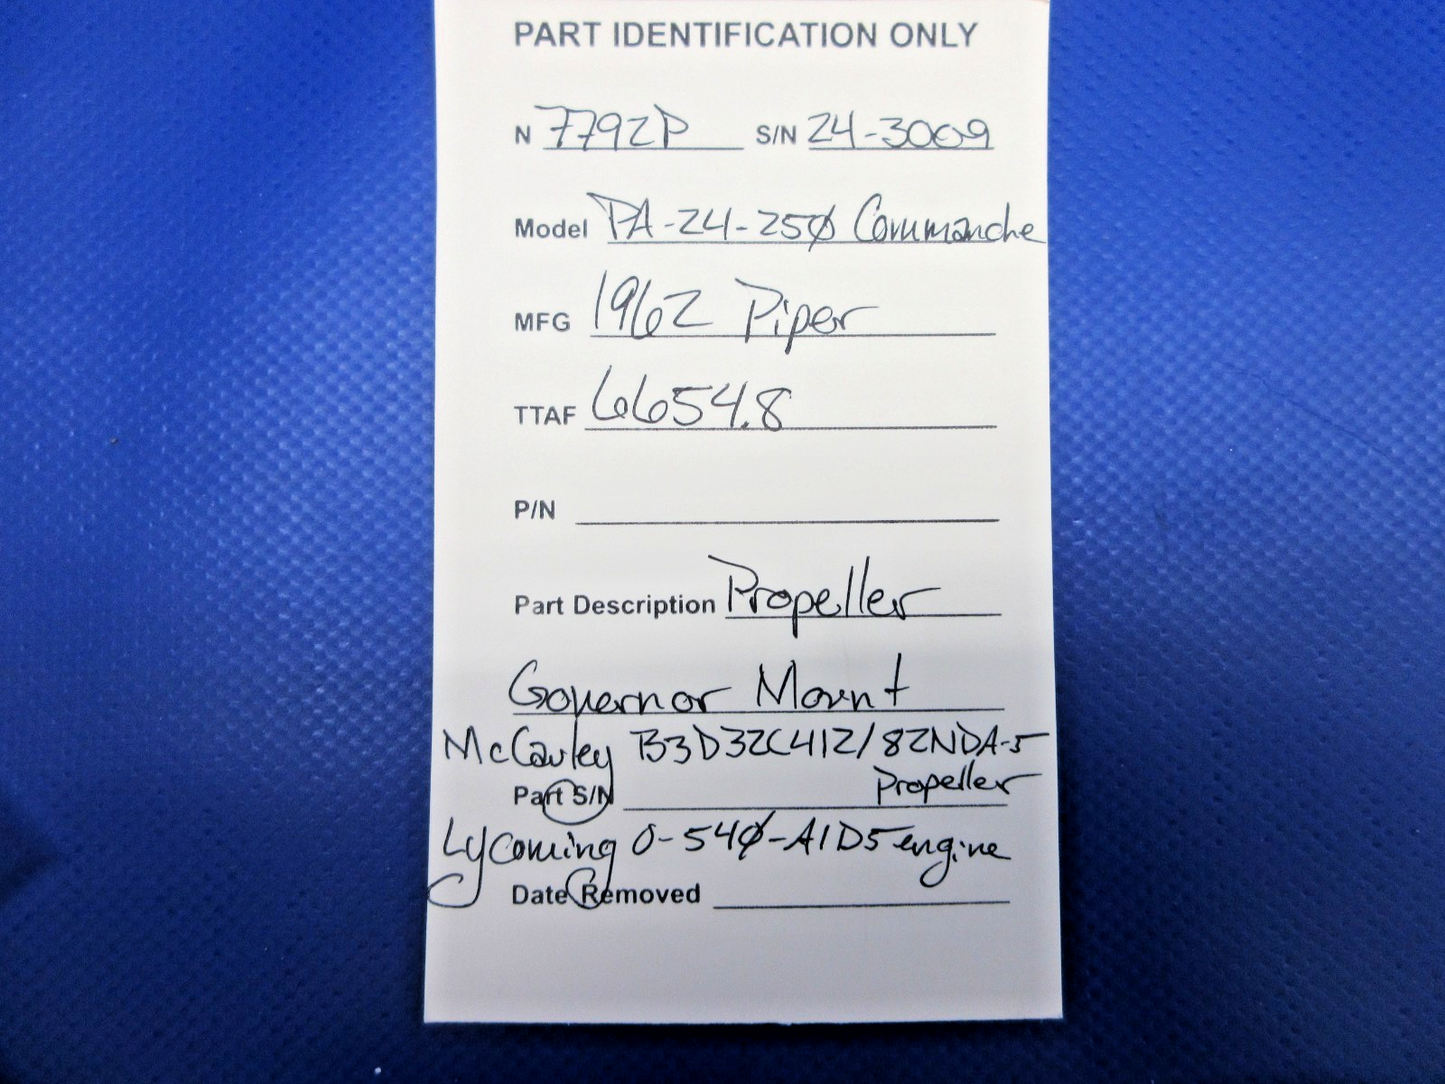 PART IDENTIFICATION ONLY
N 7792P S/N 24-3009
Model PA-24-250 Commanche
MFG 1962 Piper
TTAF 6654.8
P/N
Part Description Propeller
Governor Mount
McCauley B3D32C412/82NDA-5
Propeller
Part S/N
Lycoming O-540-A1D5 engine
Date Removed